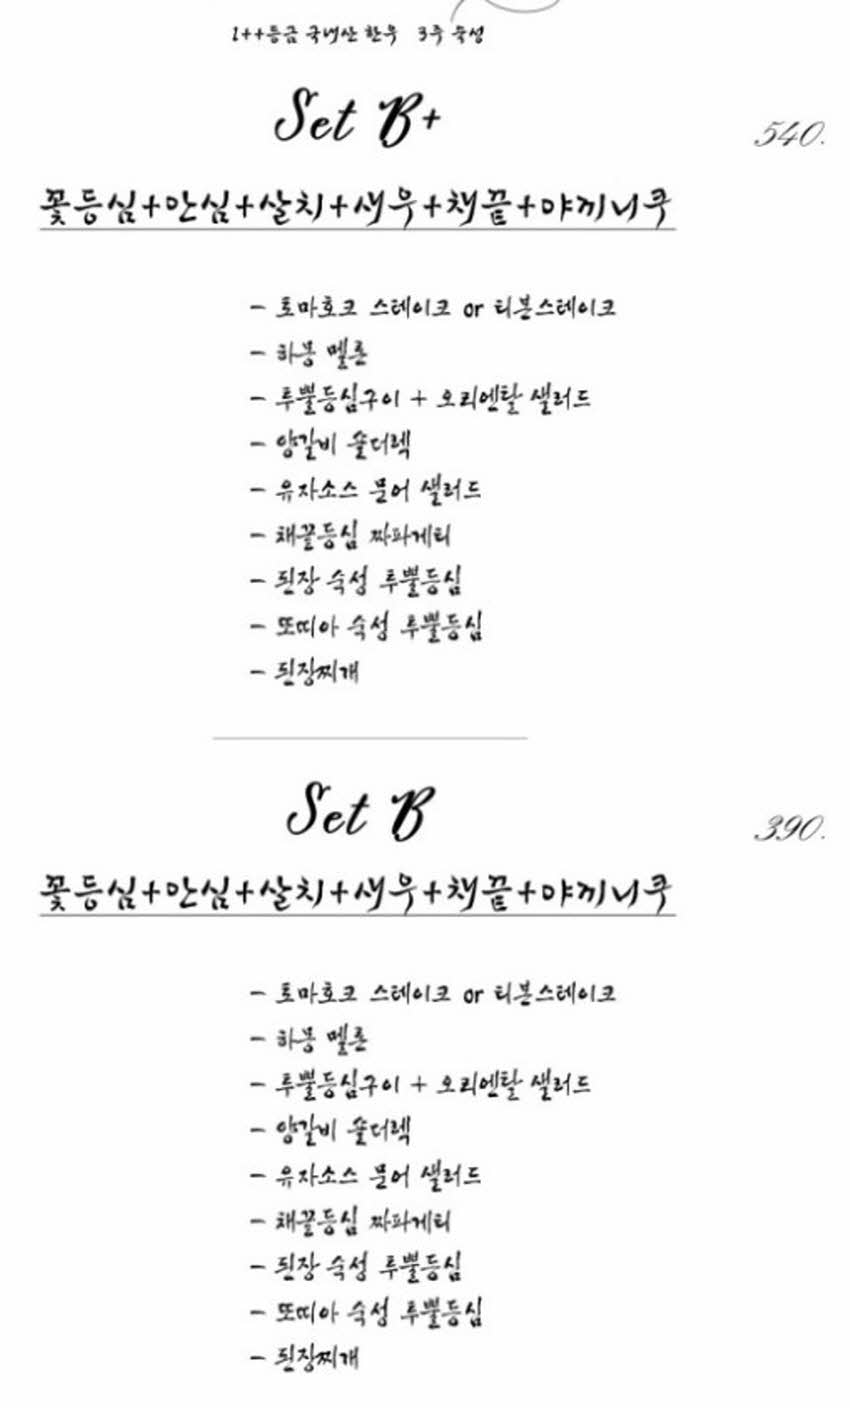 1++등급 국내산 한우 3주 숙성
Set B+
540.
꽃등심+안심+살치+새우+채끝+야끼니쿠
- 토마호크 스테이크 or 티본스테이크
- 하몽 멜론
- 루뽈등심구이 + 오리엔탈 샐러드
- 양갈비 숄더렉
- 유자소스 문어 샐러드
- 채끝등심 짜파게티
- 된장 숙성 루뽈등심
- 또띠아 숙성 루뽈등심
- 된장찌개
Set B
390.
꽃등심+안심+살치+새우+채끝+야끼니쿠
- 토마호크 스테이크 or 티본스테이크
- 하몽 멜론
- 루뽈등심구이 + 오리엔탈 샐러드
- 양갈비 숄더렉
- 유자소스 문어 샐러드
- 채끝등심 짜파게티
- 된장 숙성 루뽈등심
- 또띠아 숙성 루뽈등심
- 된장찌개